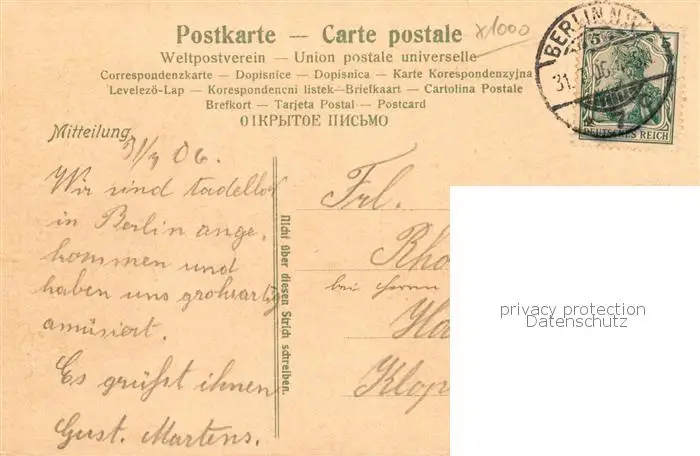 Postkarte — Carte postale
x1000
Weltpostverein — Union postale universelle
Correspondenzkarte — Dopisnice — Dopisnica — Karte Korespondenzyjna
Levelező-Lap — Korespondencni listek — Briefkaart — Cartolina Postale
Brefkort — Tarjeta Postal — Postcard
ОТКРЫТОЕ ПИСЬМО
BERLIN N.W.
31.
06.
* 7
5
DEUTSCHES REICH
Mitteilung
06.
Wir sind tadellos
in Berlin ange-
kommen und
haben uns großartig
amüsiert.
Es grüßt ihnen
Gust. Martens.
Nicht über diesen Strich schreiben.
Frl.
Rho
bei Herrn
Ha
Klop
privacy protection
Datenschutz